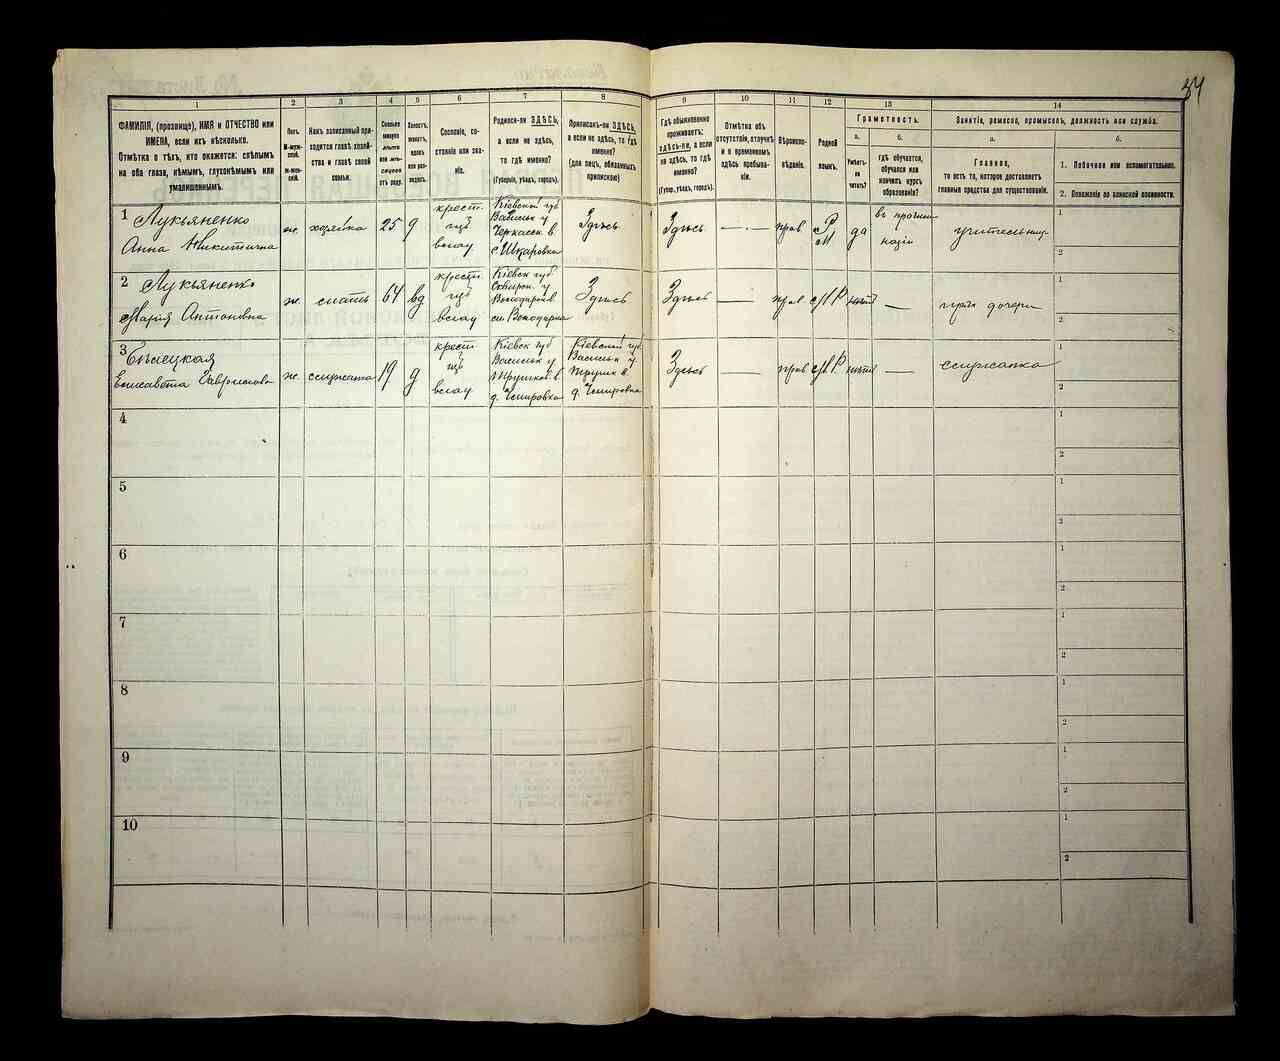 34
1
2
3
4
5
6
7
8
9
10
11
12
13
14
ФАМИЛІЯ, (прозвище), ИМЯ и ОТЧЕСТВО или
ИМЕНА, если ихъ нѣсколько.
Отмѣтка о тѣхъ, кто окажется: слѣпымъ
на оба глаза, нѣмымъ, глухонѣмымъ или
умалишеннымъ.
Полъ.
М-муж-
ской.
Ж-жен-
скій.
Какъ записанный при-
ходится главѣ хозяй-
ства и главѣ своей
семьи.
Сколько
минуло
лѣтъ
или мѣ-
сяцевъ
отъ роду.
Холостъ,
женатъ,
вдовъ
или раз-
веденъ.
Сословіе, со-
стояніе или зва-
ніе.
Родился-ли ЗДѢСЬ,
а если не здѣсь,
то гдѣ именно?
(Губернія, уѣздъ, городъ).
Приписанъ-ли ЗДѢСЬ,
а если не здѣсь, то гдѣ
именно?
(для лицъ, обязанныхъ
припискою)
Гдѣ обыкновенно
проживаетъ:
здѣсь-ли, а если
не здѣсь, то гдѣ
именно?
(Губер., уѣздъ, городъ).
Отмѣтка объ
отсутствіи, отлучкѣ
и о временномъ
здѣсь пребыва-
ніи.
Вѣроиспо-
вѣданіе.
Родной
языкъ.
Грамотность.
а.
Умѣетъ-
ли
читать?
б.
гдѣ обучается,
обучался или
кончилъ курсъ
образованія?
Занятіе, ремесло, промыселъ, должность или служба.
а.
Главное,
то есть то, которое доставляетъ
главныя средства для существованія.
б.
1. Побочное или вспомогательное.
2. Положеніе по воинской повинности.
1 Лукьяненко
Анна Никитична
ж. хозяйка 25 д
крест.
Кіевской губ
Васильк у
с Шкаровка
Здѣсь
Здѣсь
— · —
прав
Р
М
да
учительниц
1
2
2 Лукьяненко
Мария Антоновна
ж. мать 64 вд
крест.
Кіевск губ
Сквирск. у
Володарск в
Здѣсь
Здѣсь
—
прав
М Р
нѣтъ
—
при дочери
1
2
3 Бѣлецкая
Елисавета Гавриловна
ж. служанка 19 д
крест
Кіевск губ
Васильк у
Кіевской губ
Васильк у
Здѣсь
—
прав
М Р
нѣтъ
—
служанка
1
2
4
1
2
5
1
2
6
1
2
7
1
2
8
1
2
9
1
2
10
1
2